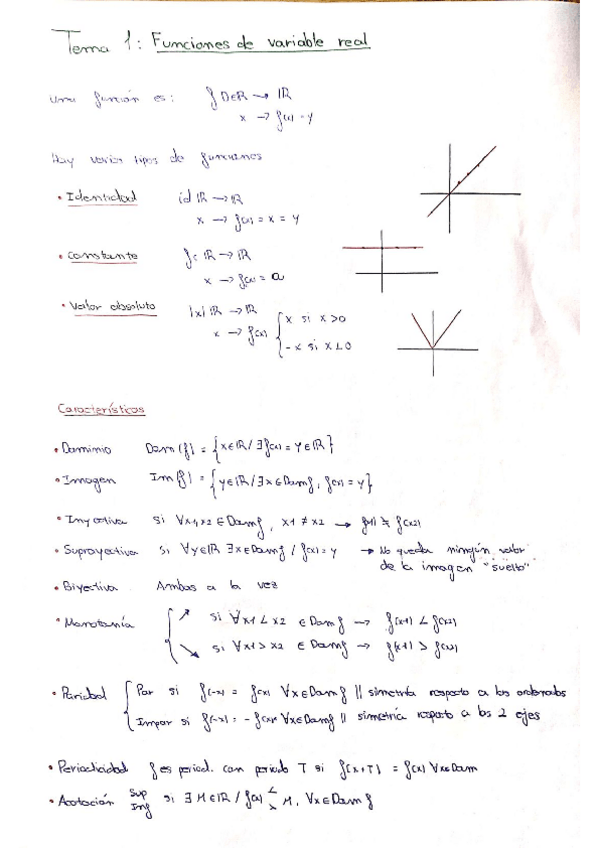 Tema 1: Funciones de variable real
Una función es: f D∈R → IR
x → f(x) = y
Hay varios tipos de funciones
• Identidad id IR → IR
x → f(x) = x = y
• Constante f: IR → IR
x → f(x) = a
• Valor absoluto |x| IR → IR
x → f(x) { x si x > 0
-x si x < 0
Características
• Dominio Dom(f) = {x∈IR / ∃ f(x) = y ∈ IR}
• Imagen Im(f) = {y∈IR / ∃x ∈ Domf, f(x) = y}
• Inyectiva si ∀x1,x2 ∈ Domf, x1 ≠ x2 → f(x1) ≠ f(x2)
• Suprayectiva si ∀y∈IR ∃x∈Domf / f(x) = y → No queda ningún valor
de la imagen "suelto"
• Biyectiva Ambas a la vez
• Monotonía { ↗ si ∀x1 < x2 ∈ Domf → f(x1) < f(x2)
↘ si ∀x1 > x2 ∈ Domf → f(x1) > f(x2)
• Paridad { Par si f(-x) = f(x) ∀x∈Domf // simetría respecto a las ordenadas
Impar si f(-x) = -f(x) ∀x∈Domf // simetría respecto a los 2 ejes
• Periodicidad f es period. con periodo T si f(x+T) = f(x) ∀x∈Dom
• Acotación Sup Inf si ∃ M∈IR / f(x) < > M, ∀x∈Domf